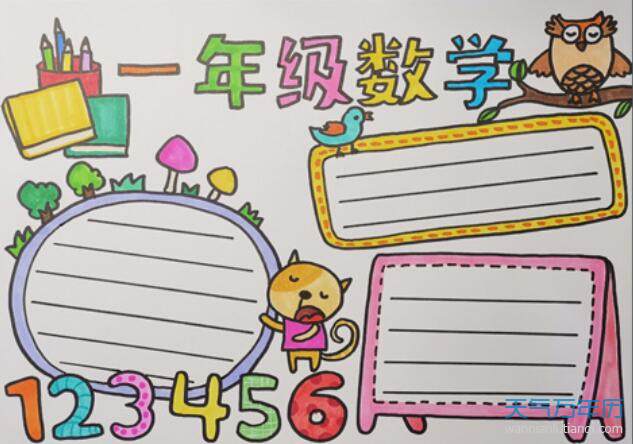 一年级数学
123456
天气万年历
wannianli.tianqi.com